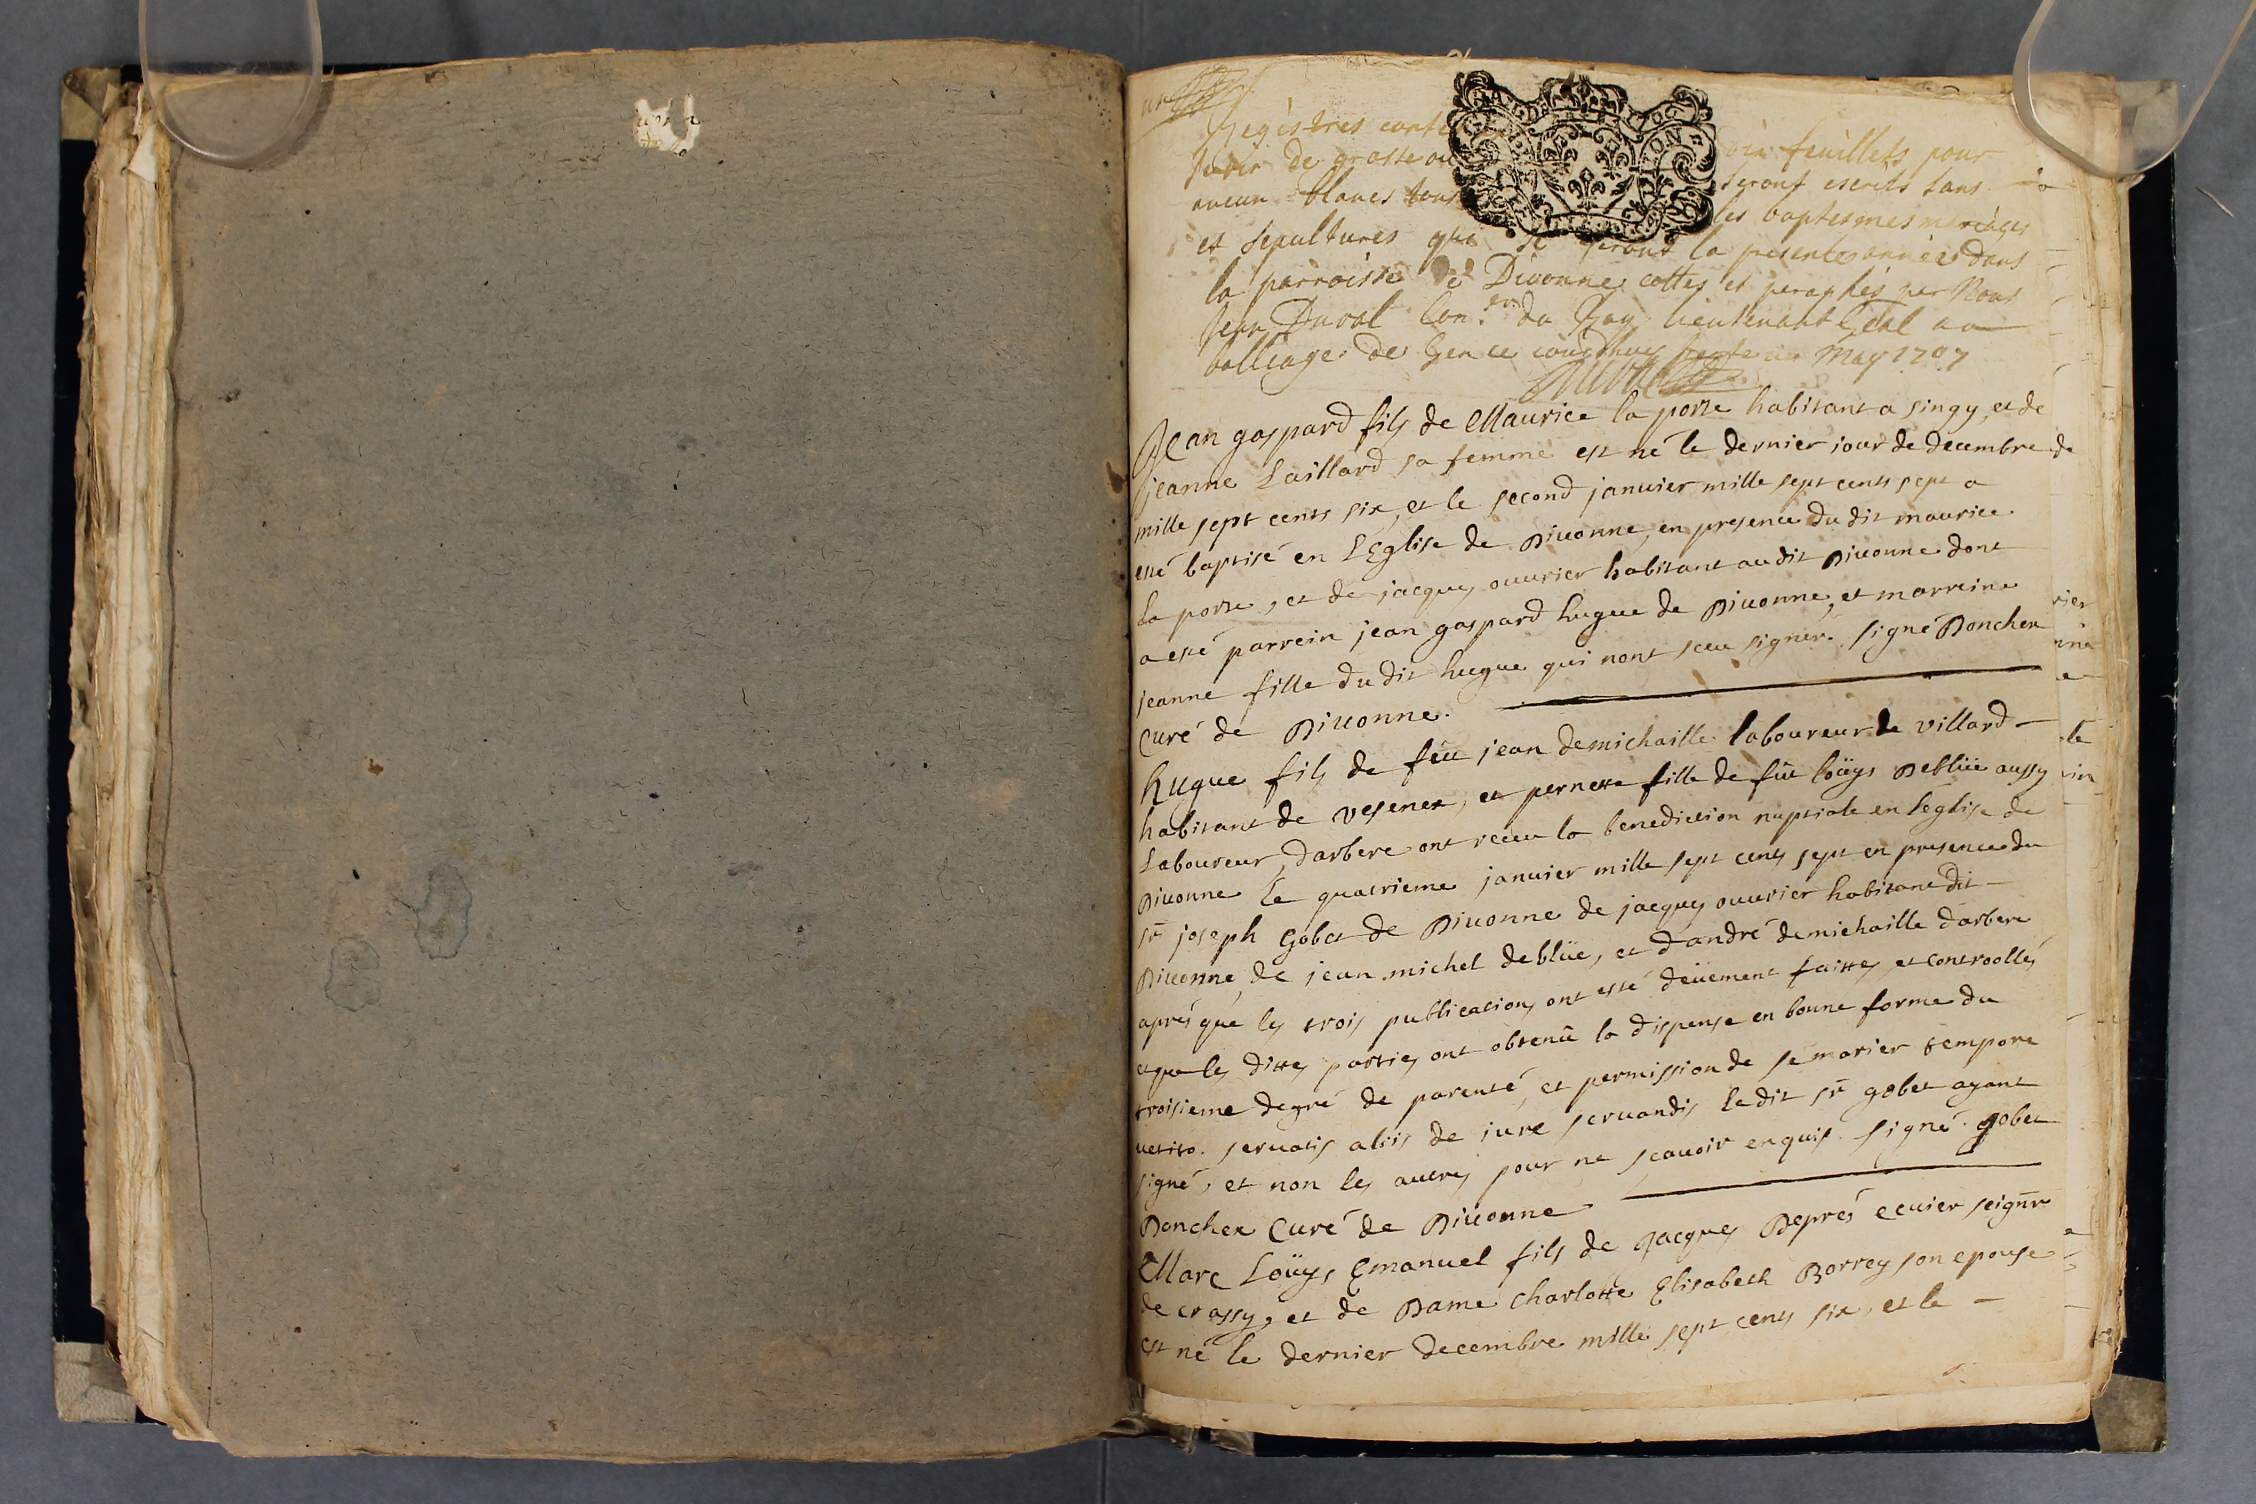 Registres
feuillets pour
servir de grosse
seront escrits sans
aucun blancs tous
les baptesmes mariages
et sepultures qui se feront la presente année dans
la parroisse de Divonne cottes et peraphés par Nous
Jean Duval Con.er du Roy lieutenant Geal au
balliage de Gex ce May 1707
Duval
Jean gaspard fils de Maurice la porte habitant a singy, et de
jeanne Laillard sa femme est né le dernier iour de decembre de
mille sept cents six, et le second januier mille sept cents sept a
esté baptisé en LEglise de Diuonne, en presence du dit maurice
la porte, et de jacques ouurier habitant audit Diuonne dont
a esté parrein jean gaspard hugue de Diuonne, et marreine
jeanne fille du dit hugue qui nont sceu signer. signé Donchen
Curé de Diuonne.
Hugue fils de feu jean demichaille laboureur de villard
habitant de vesenex, et pernette fille de fũ loüys Deblüe aussy
Laboureur darbere ont receu la benediction nuptiale en l'eglise de
Diuonne le quatrieme januier mille sept cents sept en presence du
sr joseph Gobet de Diuonne de jacques ouurier habitant dit
Diuonne, de jean michel deblüe, et d'andré demichaille darbere
aprés que les trois publications ont esté deüement faittes, et controollés
et que les dittes parties ont obtenû la dispense en bonne forme du
troisieme degré de parenté, et permission de se marier tempore
vetito. seruatis aliis de iure seruandis ledit sr gobet ayant
signé, et non les autres pour ne sçauoir enquis. signé. gobet
Donchen Curé de Diuonne
Marc Loüys Emanuel fils de Jacques Deprés ecuier seignr
de crassy, et de Dame charlotte Elisabeth Borrey son epouse
est né le dernier decembre mille sept cents six, et le